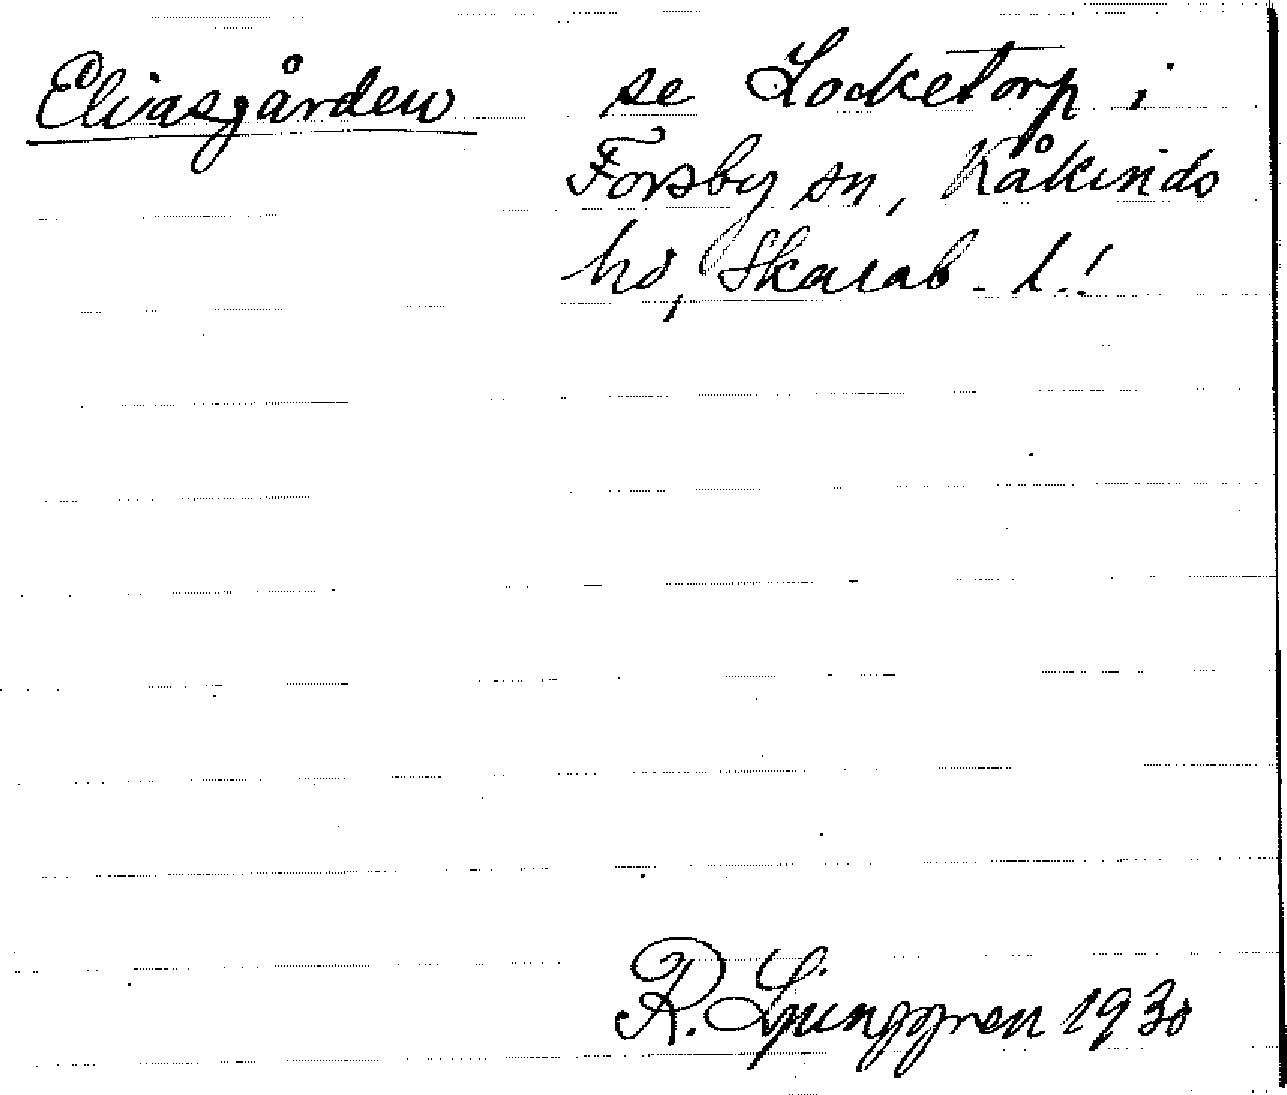 Eliasgården se Locketorp i
Forsby sn, Kåkinds
hd, Skarab. l.!
R. Ljunggren 1930